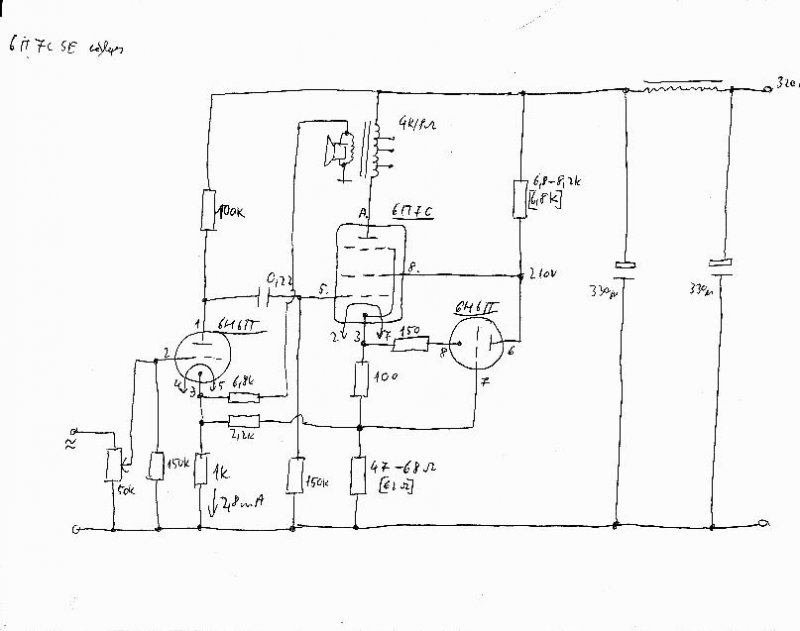 6П7С SE
320
4K/8Ω
6,8-8,2k
[6,8k]
100k
A.
6П7С
8.
210V
0,22
5.
330µ
330µ
1
6Н6П
6Н6П
2
2
3
7
150
8
6
4
3
5
6,8k
100
7
2,2k
≈
50k
150k
1k
2,8mA
150k
47-68Ω
[62Ω]